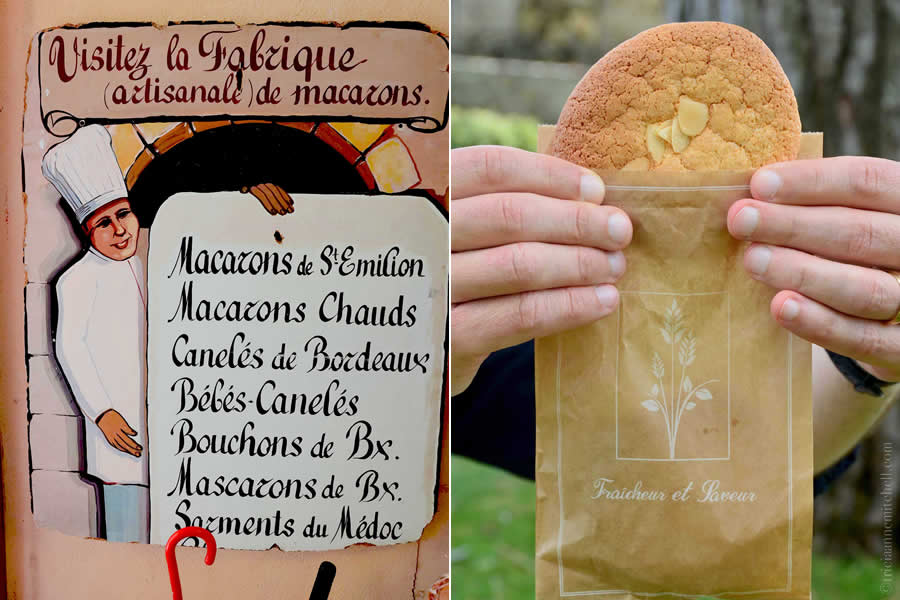 Visitez la Fabrique
(artisanale) de macarons.
Macarons de St Emilion
Macarons Chauds
Canelés de Bordeaux
Bébés-Canelés
Bouchons de Bx.
Mascarons de Bx.
Sarments du Médoc
Fraîcheur et Saveur
© triciaannemitchell.com